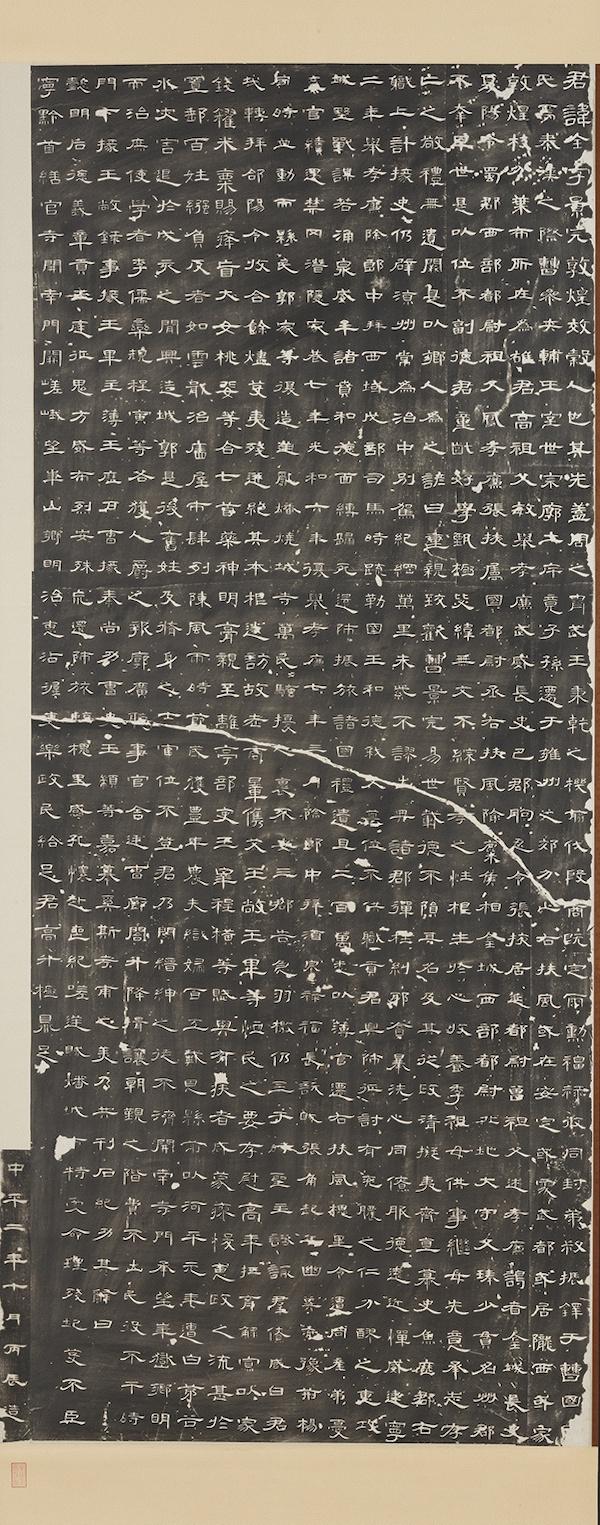 君諱全字景完敦煌效穀人也其先蓋周之胄武王秉乾之機翦伐殷商既定爾勳福祿攸同封弟叔振鐸于曹國
氏焉秦漢之際曹參夾輔王室世宗廓土斥竟子孫遷于雍州之郊分止右扶風或在安定或處武都或居隴西或家
敦煌枝分葉布所在為雄君高祖父敏舉孝廉武威長史巴郡朐忍令張掖居延都尉曾祖父述孝廉謁者金城長史
夏陽令蜀郡西部都尉祖父鳳孝廉張掖屬國都尉丞右扶風隃麋侯相金城西部都尉北地大守父琫少貫名州郡
不幸早世是以位不副德君童齔好學甄極毖緯無文不綜賢孝之性根生於心收養季祖母供事繼母先意承志存
亡之敬禮無遺闕是以鄉人為之諺曰重親致歡曹景完易世載德不隕其名及其從政清擬夷齊直慕史魚歷郡右
職上計掾史仍辟涼州常為治中別駕紀綱萬里朱紫不謬出典諸郡彈枉糾邪貪暴洗心同僚服德遠近憚威建寧
二年舉孝廉除郎中拜西域戊部司馬時疏勒國王和德弒父篡位不供職貢君興師征討有吮膿之仁分醪之惠攻
城野戰謀若涌泉威牟諸賁和德面縛歸死還師振旅諸國禮遺且二百萬悉以薄官遷右扶風槐里令遭同產弟憂
棄官續遇禁冈潛隱家巷七年光和六年復舉孝廉七年三月除郎中拜酒泉祿福長訞賊張角起兵幽冀兗豫荊楊
同時並動而縣民郭家等復造逆亂燔燒城寺萬民騷擾人裹不安三郡告急羽檄仍至于時聖主諮諏群僚咸曰君
哉轉拜郃陽令收合餘燼芟夷殘迸絕其本根遂訪故老商量儁艾王敞王畢等恤民之要存慰高年撫育鰥寡以家
錢糴米粟賜癃盲大女桃婓等合七首藥神明膏親至離亭部吏王宰程橫等賦與有疾者咸蒙瘳悛惠政之流甚於
置郵百姓繦負反者如雲戢治廧屋市肆列陳風雨時節歲獲豐年農夫織婦百工戴恩縣前以河平元年遭白茅谷
水災害退於戌亥之間興造城郭是後舊姓及脩身之士官位不登君乃閔縉紳之徒不濟開南寺門承望華嶽鄉明
而治庶使學者李儒欒規程寅等各獲人爵之報廓廣聽事官舍廷曹廊閤升降揖讓朝覲之階費不出民役不干時
門下掾王敞錄事掾王畢主薄王歷戶曹掾秦尚功曹史王顓等嘉慕奚斯考甫之美乃共刊石紀功其辭曰
懿明后德義章貢王庭征鬼方威布烈安殊荒還師旅臨槐里感孔懷赴喪紀嗟逆賊燔城市特受命理殘圮芟不臣
寧黔首繕官寺開南門闕嵯峨望華山鄉明治惠沾渥吏樂政民給足君高升極鼎足
中平二年十月丙辰造